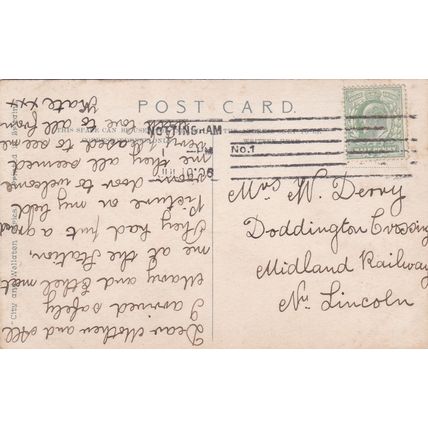 POST CARD.
THIS SPACE CAN BE USED
NOTTINGHAM
No.1
Mrs W. Derry
Doddington Crossing
Midland Railway
Nr Lincoln
Dear Mother and All
I arrived safely
Mary and Ethel met
me at the Station.
They had put a
Picture on my bed
room door to welcome
me they all seemed
very pleased to see me
love to all from
Kate xxx